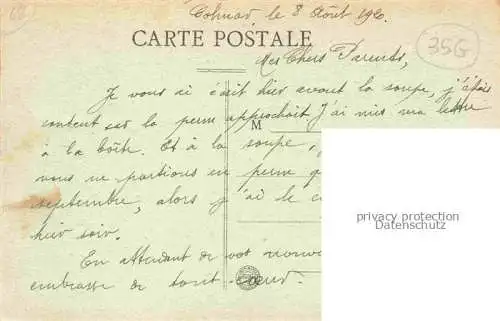 Colmar, le 8 Août 1920.
CARTE POSTALE
35G
Mes Chers Parents,
Je vous ai écrit hier avant la soupe, j'étais
content car la perm approchait J'ai mis ma lettre
M
à la boîte. Et à la soupe,
vous ne partions en perm
septembre, alors j'ai le
hier soir.
privacy protection
Datenschutz
En attendant de vos
embrasse de tout cœur.